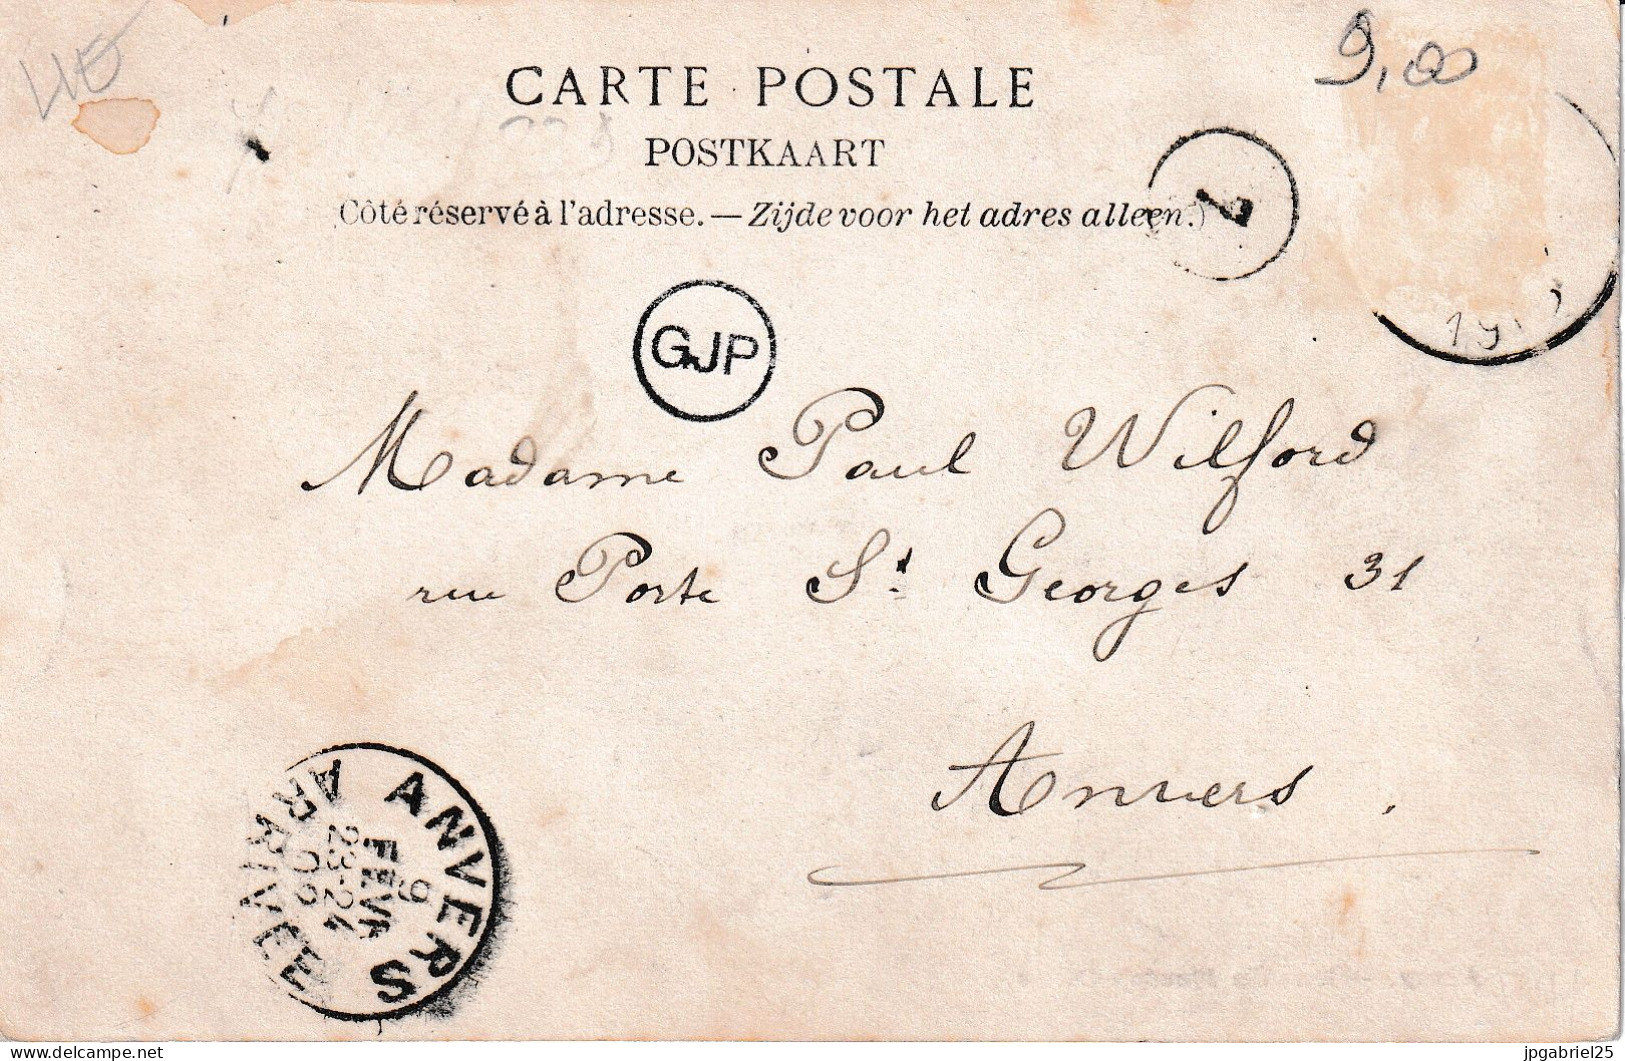 LIE
9,00
CARTE POSTALE
POSTKAART
(Côté réservé à l'adresse. — Zijde voor het adres alleen.)
7
GJP
Madame Paul Wilford
rue Porte St Georges 31
Anvers.
ANVERS
9
FEVR
23-24
ARRIVÉE
delcampe.net
jpgabriel25